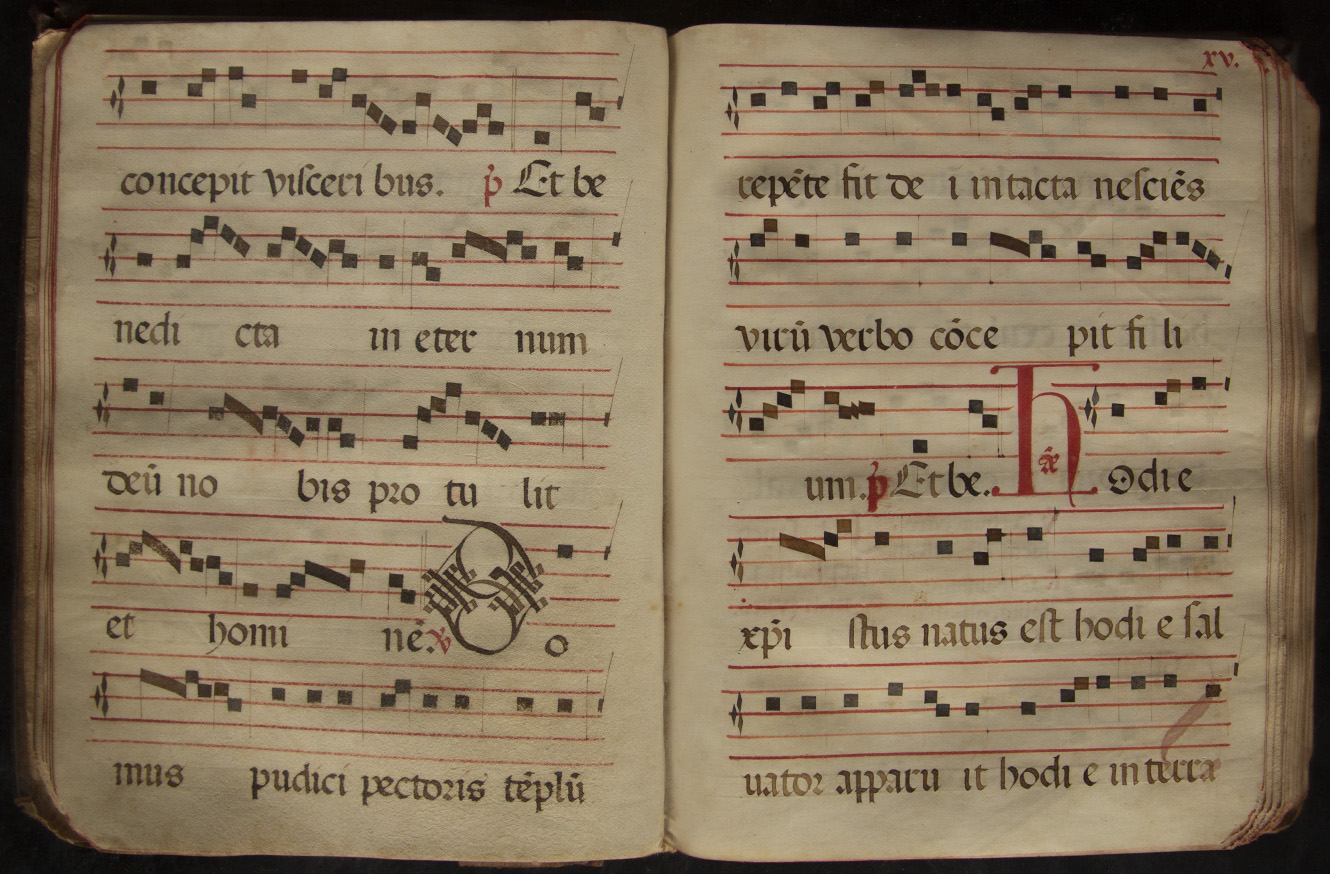 concepit visceri bus. p̄ Et be
nedi cta in eter num
deū no bis pro tu lit
et homi nē. ℣ D o
mus pudici pectoris tēplū
xv.
repēte fit de i intacta nesciēs
virū verbo cōce pit fi li
um. p̄ Et be. H ā odi e
xp̄i stus natus est hodi e sal
uator apparu it hodi e in terra